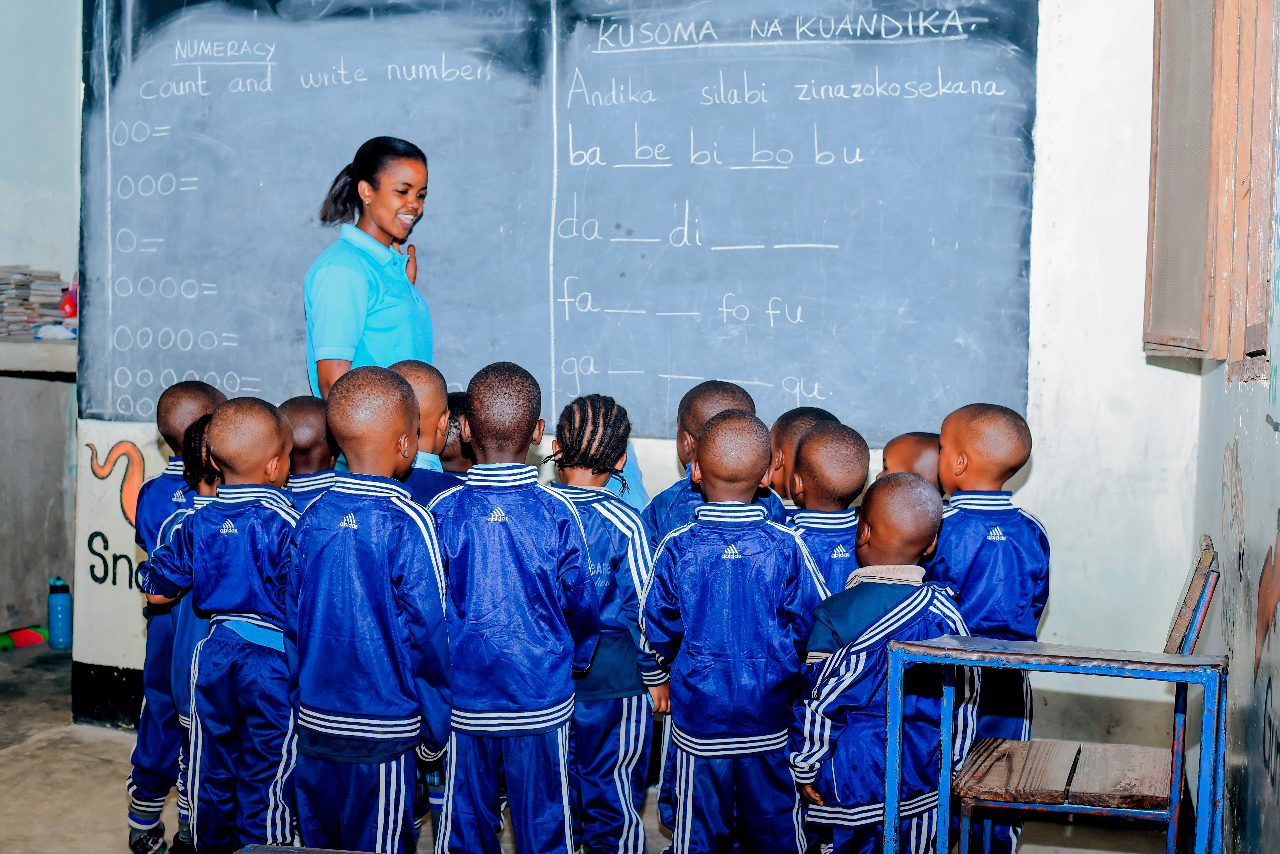 NUMERACY
count and write numbers
00=
000=
0=
0000=
00000=
000000=
KUSOMA NA KUANDIKA.
Andika silabi zinazokosekana
ba be bi bo bu
da __ di __ __
fa __ __ fo fu
ga __ __ __ gu.
Sn
adidas
adidas
adidas
adidas
adidas
adidas
adidas